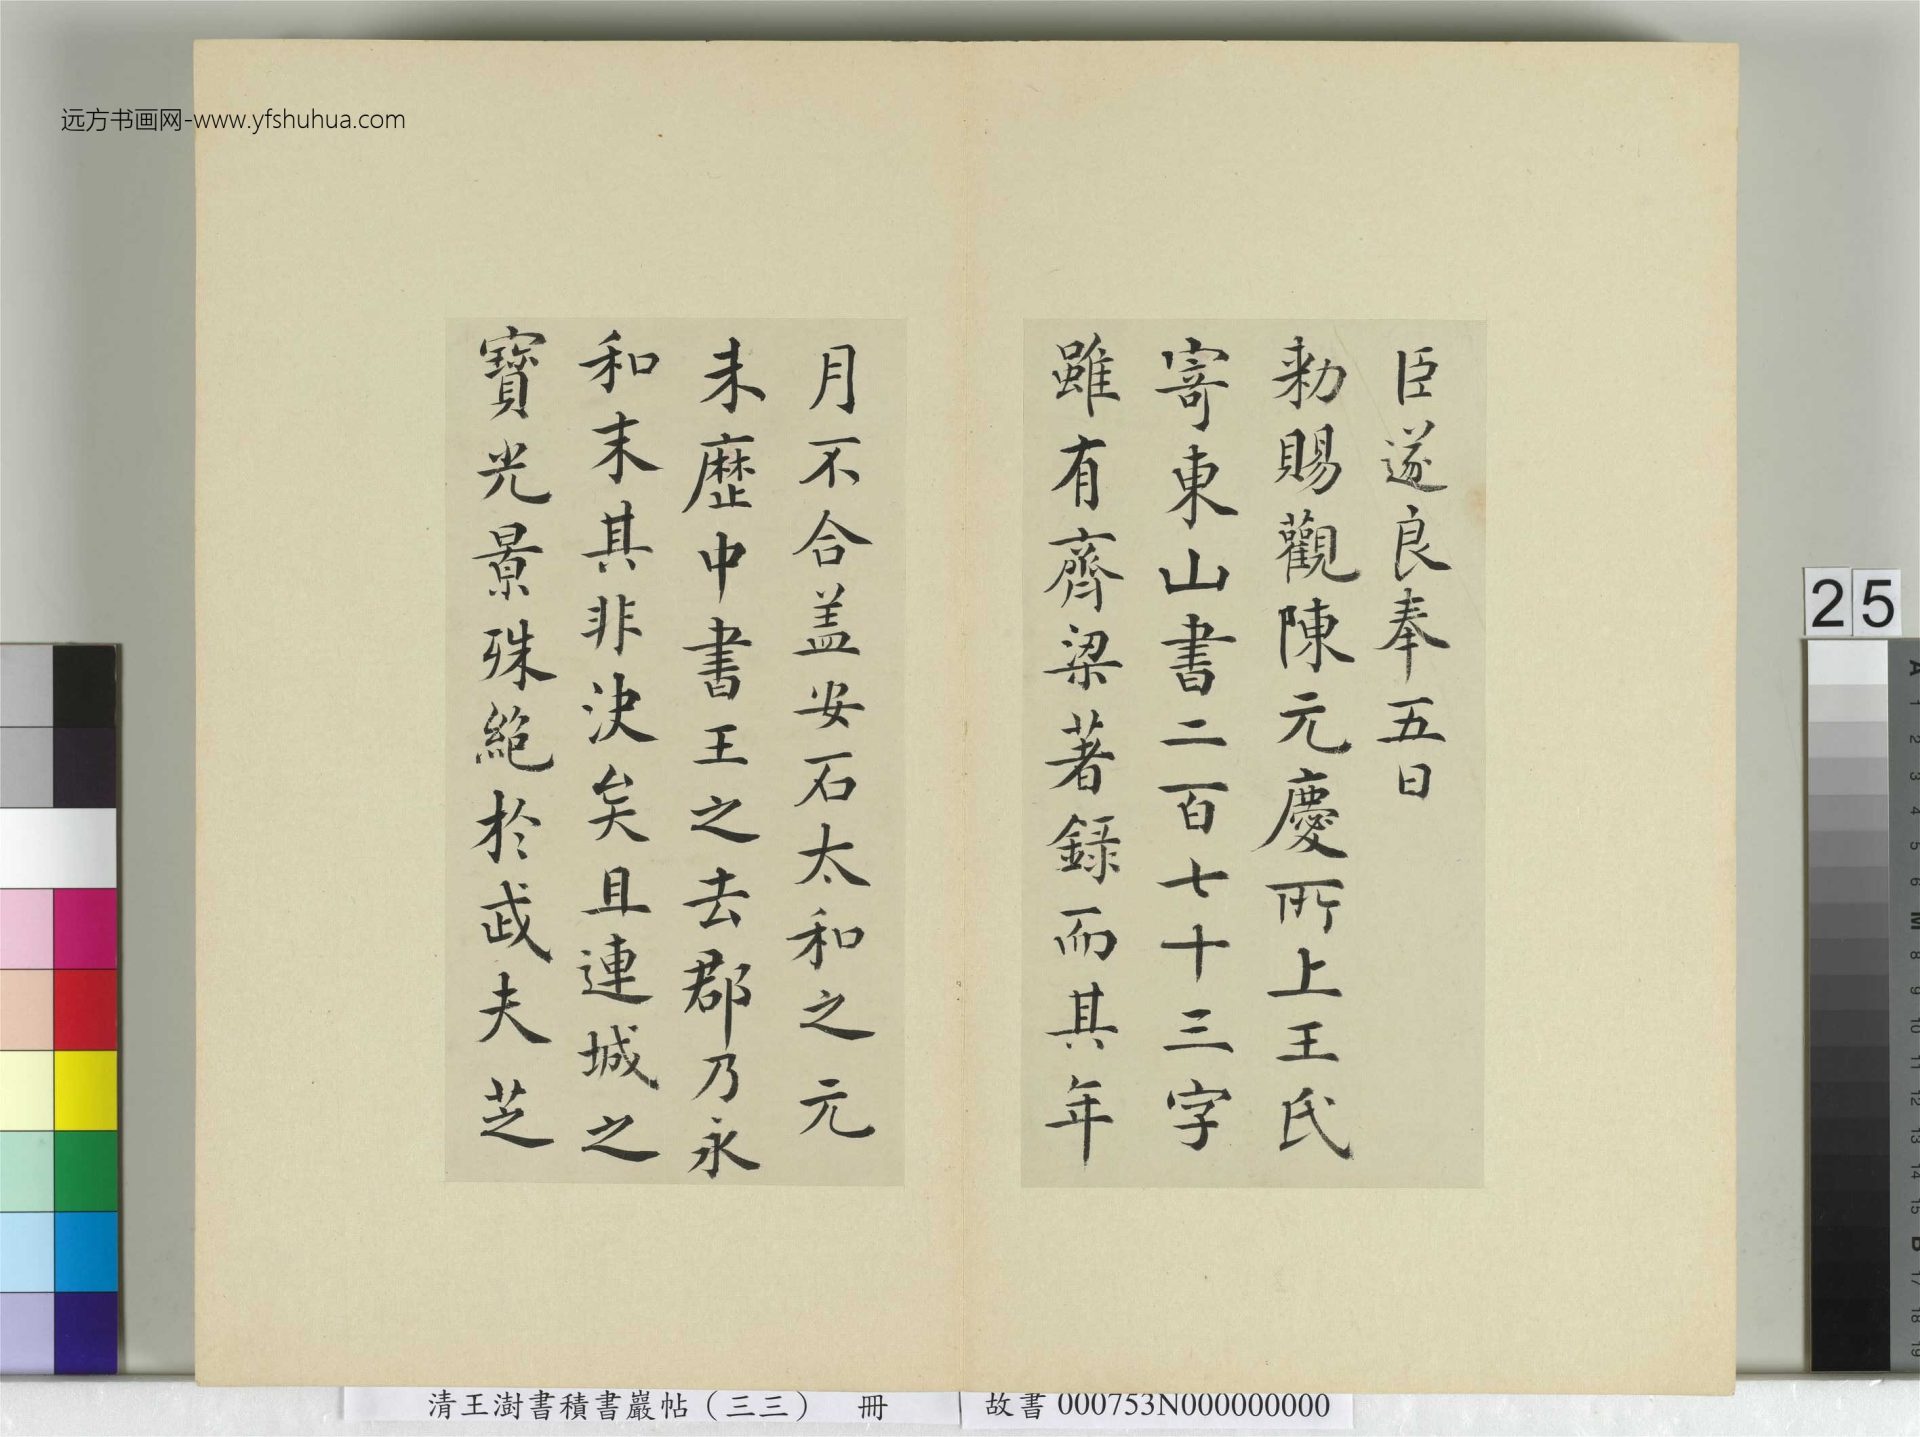 远方书画网-www.yfshuhua.com
臣遂良奉五日
勑賜觀陳元慶所上王氏
寄東山書二百七十三字
雖有齊梁著錄而其年
月不合盖安石太和之元
未歷中書王之去郡乃永
和末其非決矣且連城之
寶光景殊絕於武夫芝
25
清王澍書積書巖帖（三三） 冊
故書 000753N000000000